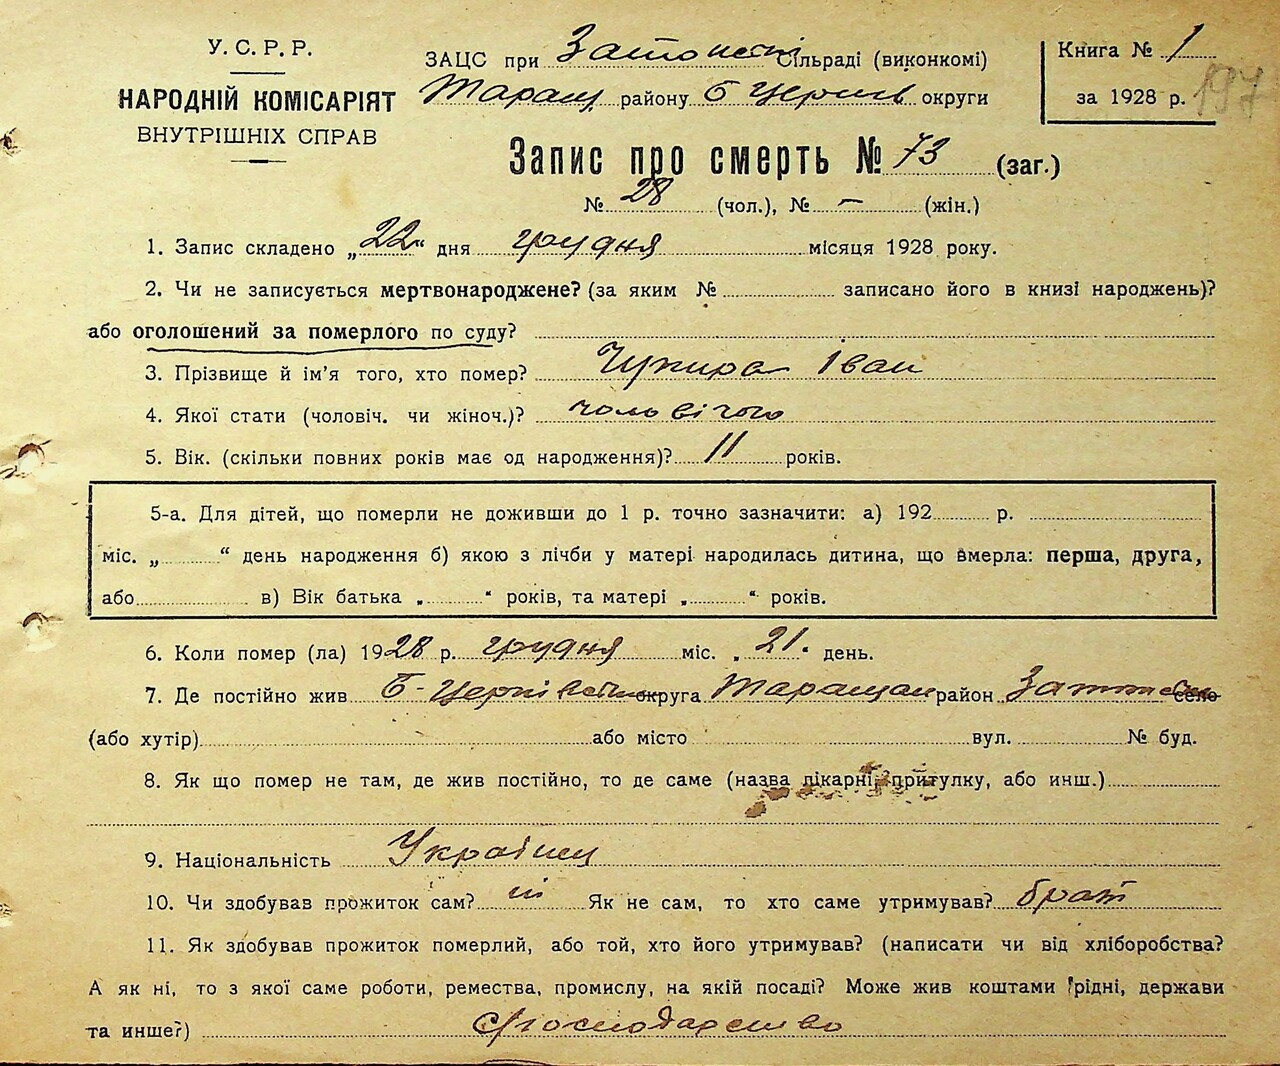 У. С. Р. Р.
НАРОДНІЙ КОМІСАРІЯТ
ВНУТРІШНІХ СПРАВ
ЗАЦС при Сільраді (виконкомі)
Таращ району Б Церків округи
Книга № 1
за 1928 р. 197
Запис про смерть № 73 (заг.)
№ 28 (чол.), № — (жін.)
1. Запис складено „22“ дня грудня місяця 1928 року.
2. Чи не записується мертвонароджене? (за яким № записано його в книзі народжень)?
або оголошений за померлого по суду?
3. Прізвище й ім'я того, хто помер? Іван
4. Якої стати (чоловіч. чи жіноч.)? чоловічого
5. Вік. (скільки повних років має од народження)? 11 років.
5-а. Для дітей, що померли не доживши до 1 р. точно зазначити: а) 192 р.
міс. „ “ день народження б) якою з лічби у матері народилась дитина, що вмерла: перша, друга,
або в) Вік батька „ “ років, та матері „ “ років.
6. Коли помер (ла) 1928 р. грудня міс. „21“ день.
7. Де постійно жив Б-Церківськ округа Таращан район село
(або хутір) або місто вул. № буд.
8. Як що помер не там, де жив постійно, то де саме (назва лікарні, притулку, або инш.)
9. Національність Українец
10. Чи здобував прожиток сам? ні Як не сам, то хто саме утримував? брат
11. Як здобував прожиток померлий, або той, хто його утримував? (написати чи від хліборобства?
А як ні, то з якої саме роботи, ремества, промислу, на якій посаді? Може жив коштами рідні, держави
та инше?) Господарство